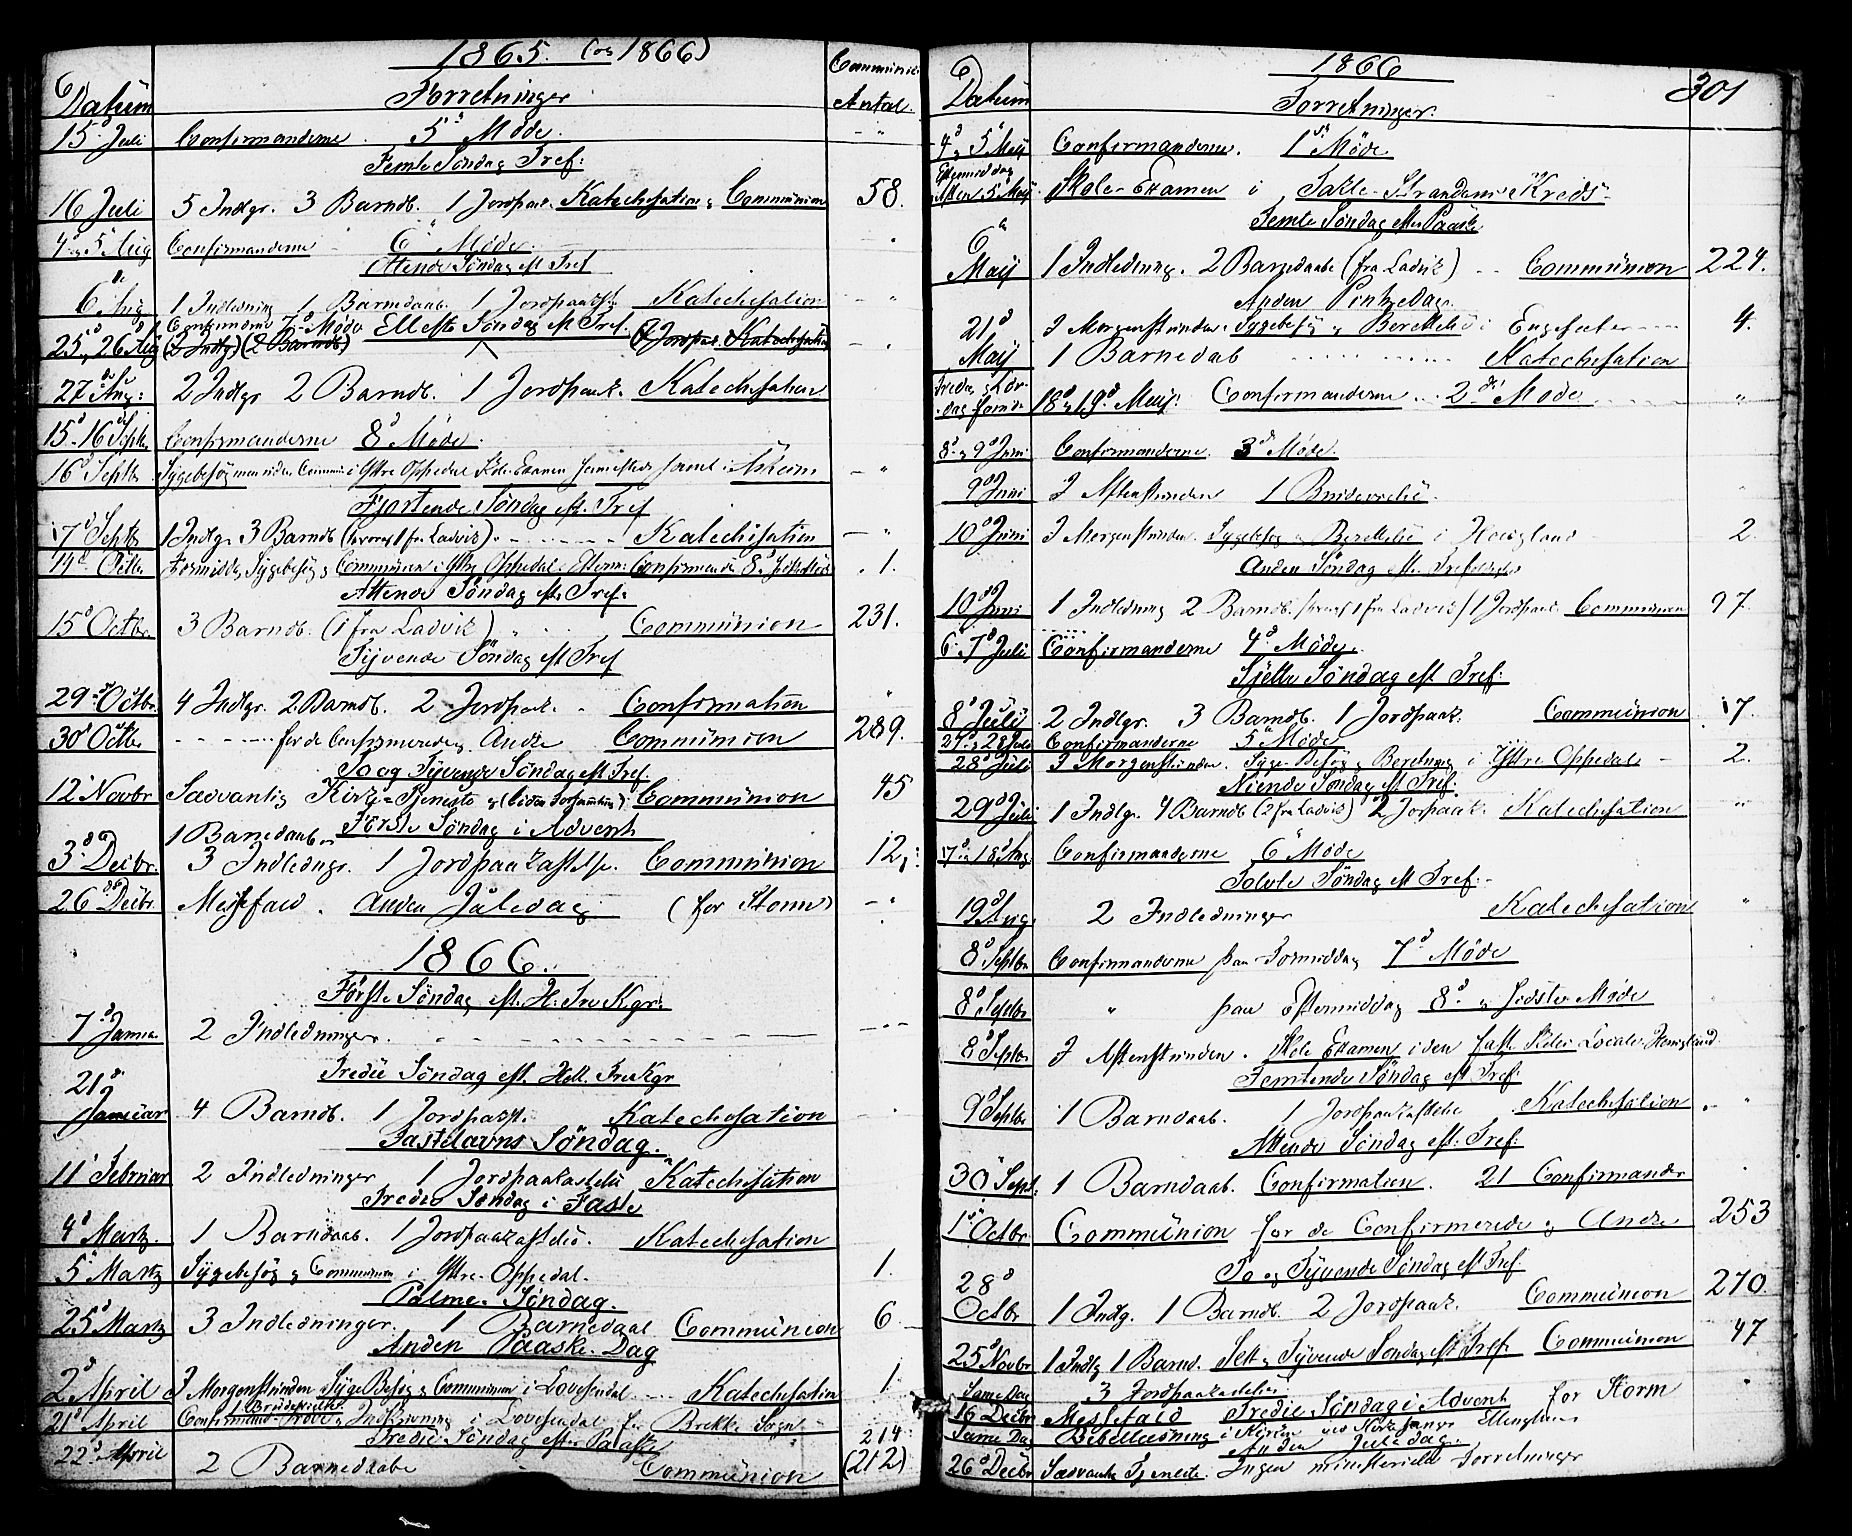 1865. (og 1866)
Datum
Forretninger
Communic.
Antal.
15d Juli Confirmanderne 5d Møde. - "
Femte Søndag Tref:
16 Juli 5 Indlgr. 3 Barndb. 1 Jordpaak. Katechisation & Communion 58.
4d og 5d Aug Confirmanderne 6 Møde. "
Ottende Søndag eft Tref
6te Aug 1 Indledning 1 Barnedaab. 1 Jordpaakst. Katechisation - "
Confirmderne 7d Møde Ellefte Søndag eft Tref.
25d og 26 Aug (2 Indlg) (2 Barndb) (1 Jordpaa. Katechisation - "
27de Aug: 2 Indlgr 2 Barndb. 1 Jordpaak. Katechisation
15d 16 Septbr Confirmanderne 8d Møde.
16d Septbr Sygebesøg men uden Commun. i Yttre Oppedal Skole-Examen samt i Askeim - "
Fjortende Søndag eft. Tref
17d Septbr 1 Indlgr 3 Barndb (hvoraf 1 fra Ladvik). Katechisation - "
14d Octbr Formiddg Sygebesøg & Communion i Yttre Oppedal. Efterm: Confirmander 8d Sidste 1.
Attende Søndag eft. Tref.
15d Octbr 3 Barndb. (1 fra Ladvik) Communion 231.
Tyvende Søndag eft Tref
29d Octbr. 4 Indlgr. 2 Barndb. 2 Jordpaak. Confirmation "
30d Octbr for de Confirmerede og Andre Communion 289.
To og Tyvende Søndag eft Tref.
12 Novbr Sædvanlig Kirke-Tjeneste Communion 45
1 Barnedaab Første Søndag i Advent
3die Decbr. 3 Indledngr. 1 Jordpaakastelse. Communion 12.
26de Decbr. Messefald. Anden Juledag (for Storm) - "
1866.
Første Søndag eft. H. Tre Kgr.
7d Januar 2 Indledninger. - " -
Tredie Søndag eft. Hell. Tre Kgr
21d
Januar 4 Barndb. 1 Jordpaakst. Katechisation
Fastelavns Søndag.
11 Februar 2 Indledninger 1 Jordpaakastelse Katechisation
Tredie Søndag i Faste
4d Martz. 1 Barndaab. 1 Jordpaakastelse. Katechisation
5 Martz Sygebesøg & Communion i Yttre-Oppedal. 1.
Palme-Søndag.
25d Martz 3 Indledninger. 1 Barnedaab Communion 6.
Anden Paaske-Dag
2d April I Morgenstunden Syge Besøg & Communion i Lovesendal Katechisation 1
1 Brudevielse
21d April Confirmand-Prøve & Indskrivning i Lovesendal for Brekke Sogn
Tredie Søndag efter Paaske 214
22d April 2 Barnedaabe Communion (212)
1866
301
Datum
Forretninger.
4d & 5 Maij Confirmanderne. 1ste Møde
Eftermiddag
Aften 5 Maij Skole-Examen i Takle-Strandens Kreds-
Femte Søndag efter Paaske
6te
Maij 1 Indledning. 2 Barnedaabe (fra Ladvik) Communion 224.
Anden Pintsedag.
21d I Morgenstunden. Sygebesøg & Berettelse i Engesæter 4.
Maij 1 Barnedab Katechisation
Fredag & Lør-
dag forude 18d & 19d Maij. Confirmanderne 2det Møde "
8d & 9d Juni Confirmanderne. 3d Møde.
9d Juni I Aftenstunden 1 Brudevielse.
10d Juni I Morgenstunden. Sygebesøg & Berettelse i Hougland 2.
Anden Søndag eft. Tref
10d Juni 1 Indledning 2 Barndb. (hvoraf 1 fra Ladvik) 1 Jordpaak. Communion 97.
6 & 7d Juli Confirmanderne 4d Møde.
Sjette Søndag eft Tref:
8d Juli 2 Indlgr. 3 Barndb. 1 Jordpaak. Communion 17.
27d & 28 Juli Confirmanderne 5te Møde
28d Juli I Morgenstunden. Syge-Besøg & Beretning i Yttre Oppedal - 2.
Niende Søndag eft Tref.
29d Juli 1 Indlgr. 4 Barndb (2 fra Ladvik) 2 Jordpaak. Katechisation "
17d & 18d Aug Confirmanderne 6te Møde
Tolvte Søndag eft Tref. -
19d Aug 2 Indledninger Katechisation "
8d Septbr Confirmanderne paa Formiddag 7d Møde
8d Septbr " paa Eftermiddag 8d & Sidste Møde
8d Septbr I Aftenstunden. Skole Examen i den faste Skoles Locale Hougland
Femtende Søndag eft Tref.
9d Septbr 1 Barndaab. 1 Jordpaakastelse Katechisation "
Attende Søndag eft. Tref:
30 Septbr: 1 Barndaab. Confirmation. 21 Confirmander
1ste Octbr. Communion for de Confirmerede & Andre 253
To og Tyvende Søndag eft Tref.
28d
Octbr 1 Indlg. 1 Barndb. 2 Jordpaak. Communion 270.
25d Novbr 1 Indlg 1 Barnd. Sex & Tyvende Søndag eft Tref. Communion 47
Samme Dag 3 Jordpaakastelser
16 Decbr Messefald Tredie Søndag i Advent for Storm
Samme Dag Bibellæsning
Anden Juledag.
26d Decbr Sædvanlig Tjeneste. Ingen ministerielle Forretninger